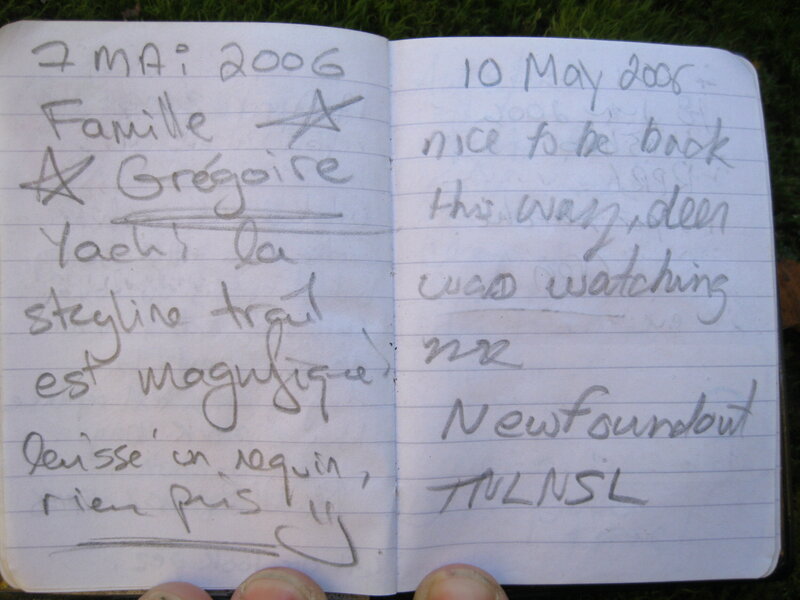 7 MAi 2006
Famille
Grégoire
la
skyline trail
est magnifique!
laissé un requin,
rien pris
10 May 2006
nice to be back
this way, deer
was watching
me
Newfoundout
TNLNSL